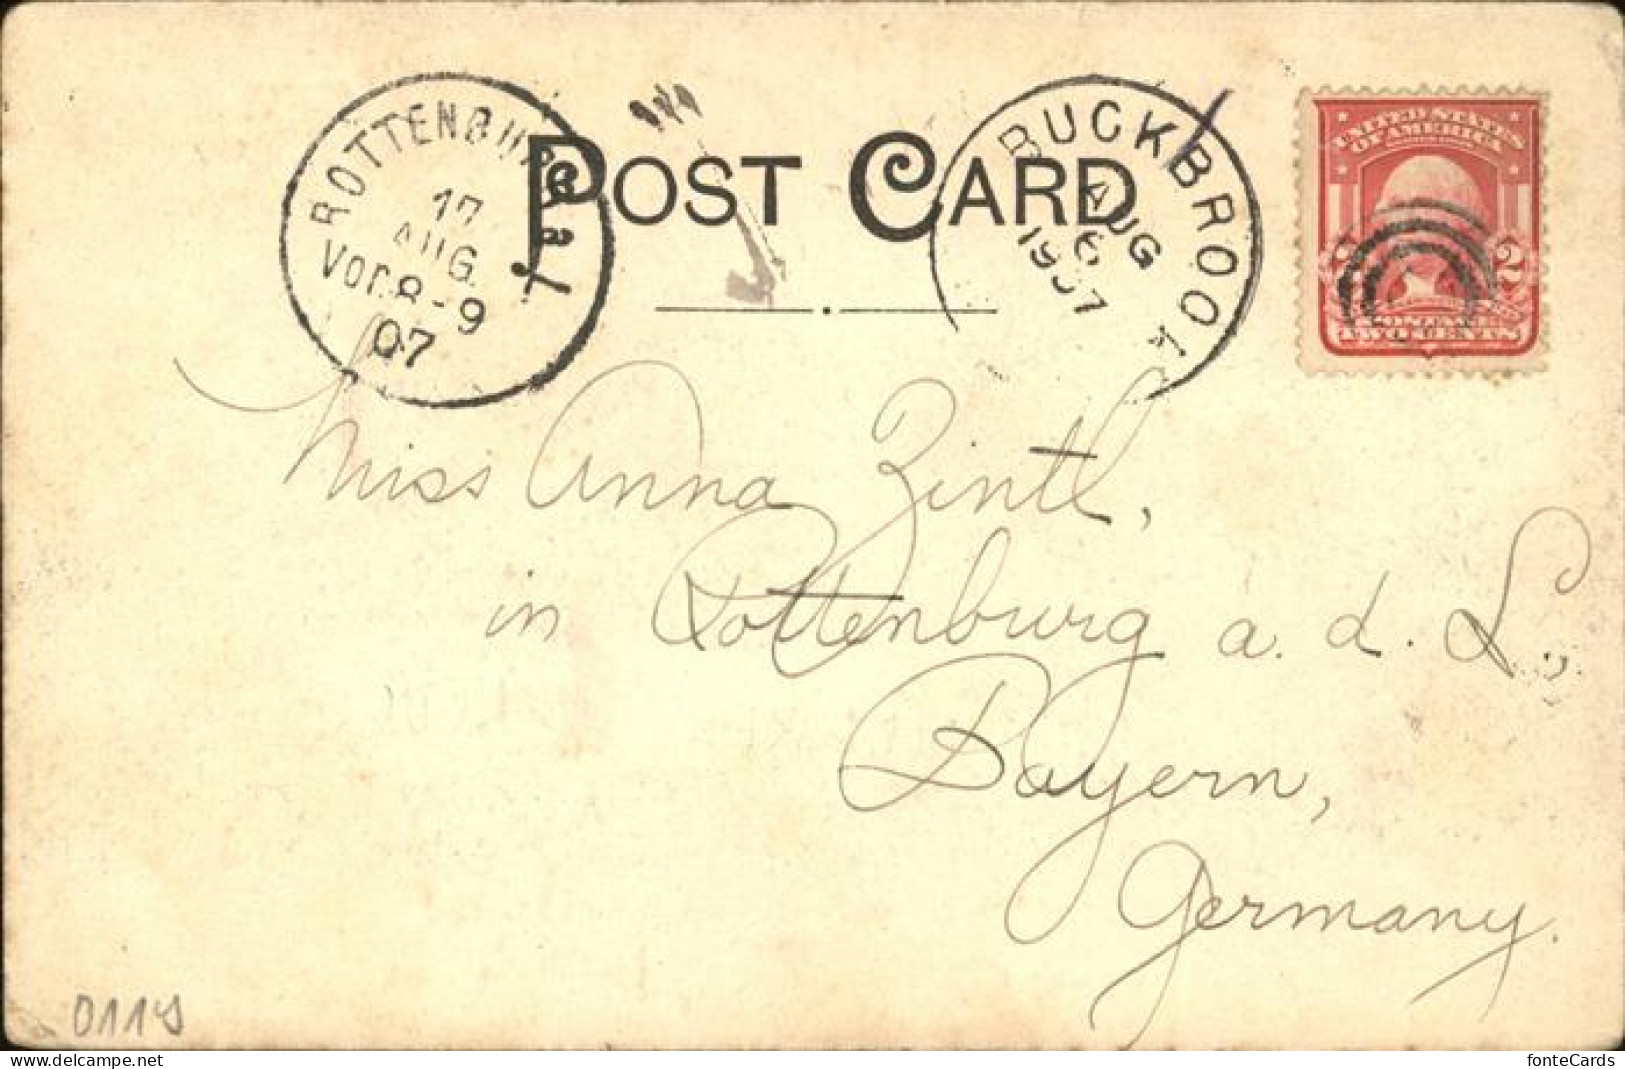 ROTTENBURG a. L
17
AUG
Vor. 8-9
07
POST CARD
BUCKBROOK
AUG
6
1907
UNITED STATES
OF AMERICA
2 2
POSTAGE
TWO CENTS
Miss Anna Zintl,
in Rottenburg a. d. L.,
Bayern,
Germany.
fonteCards